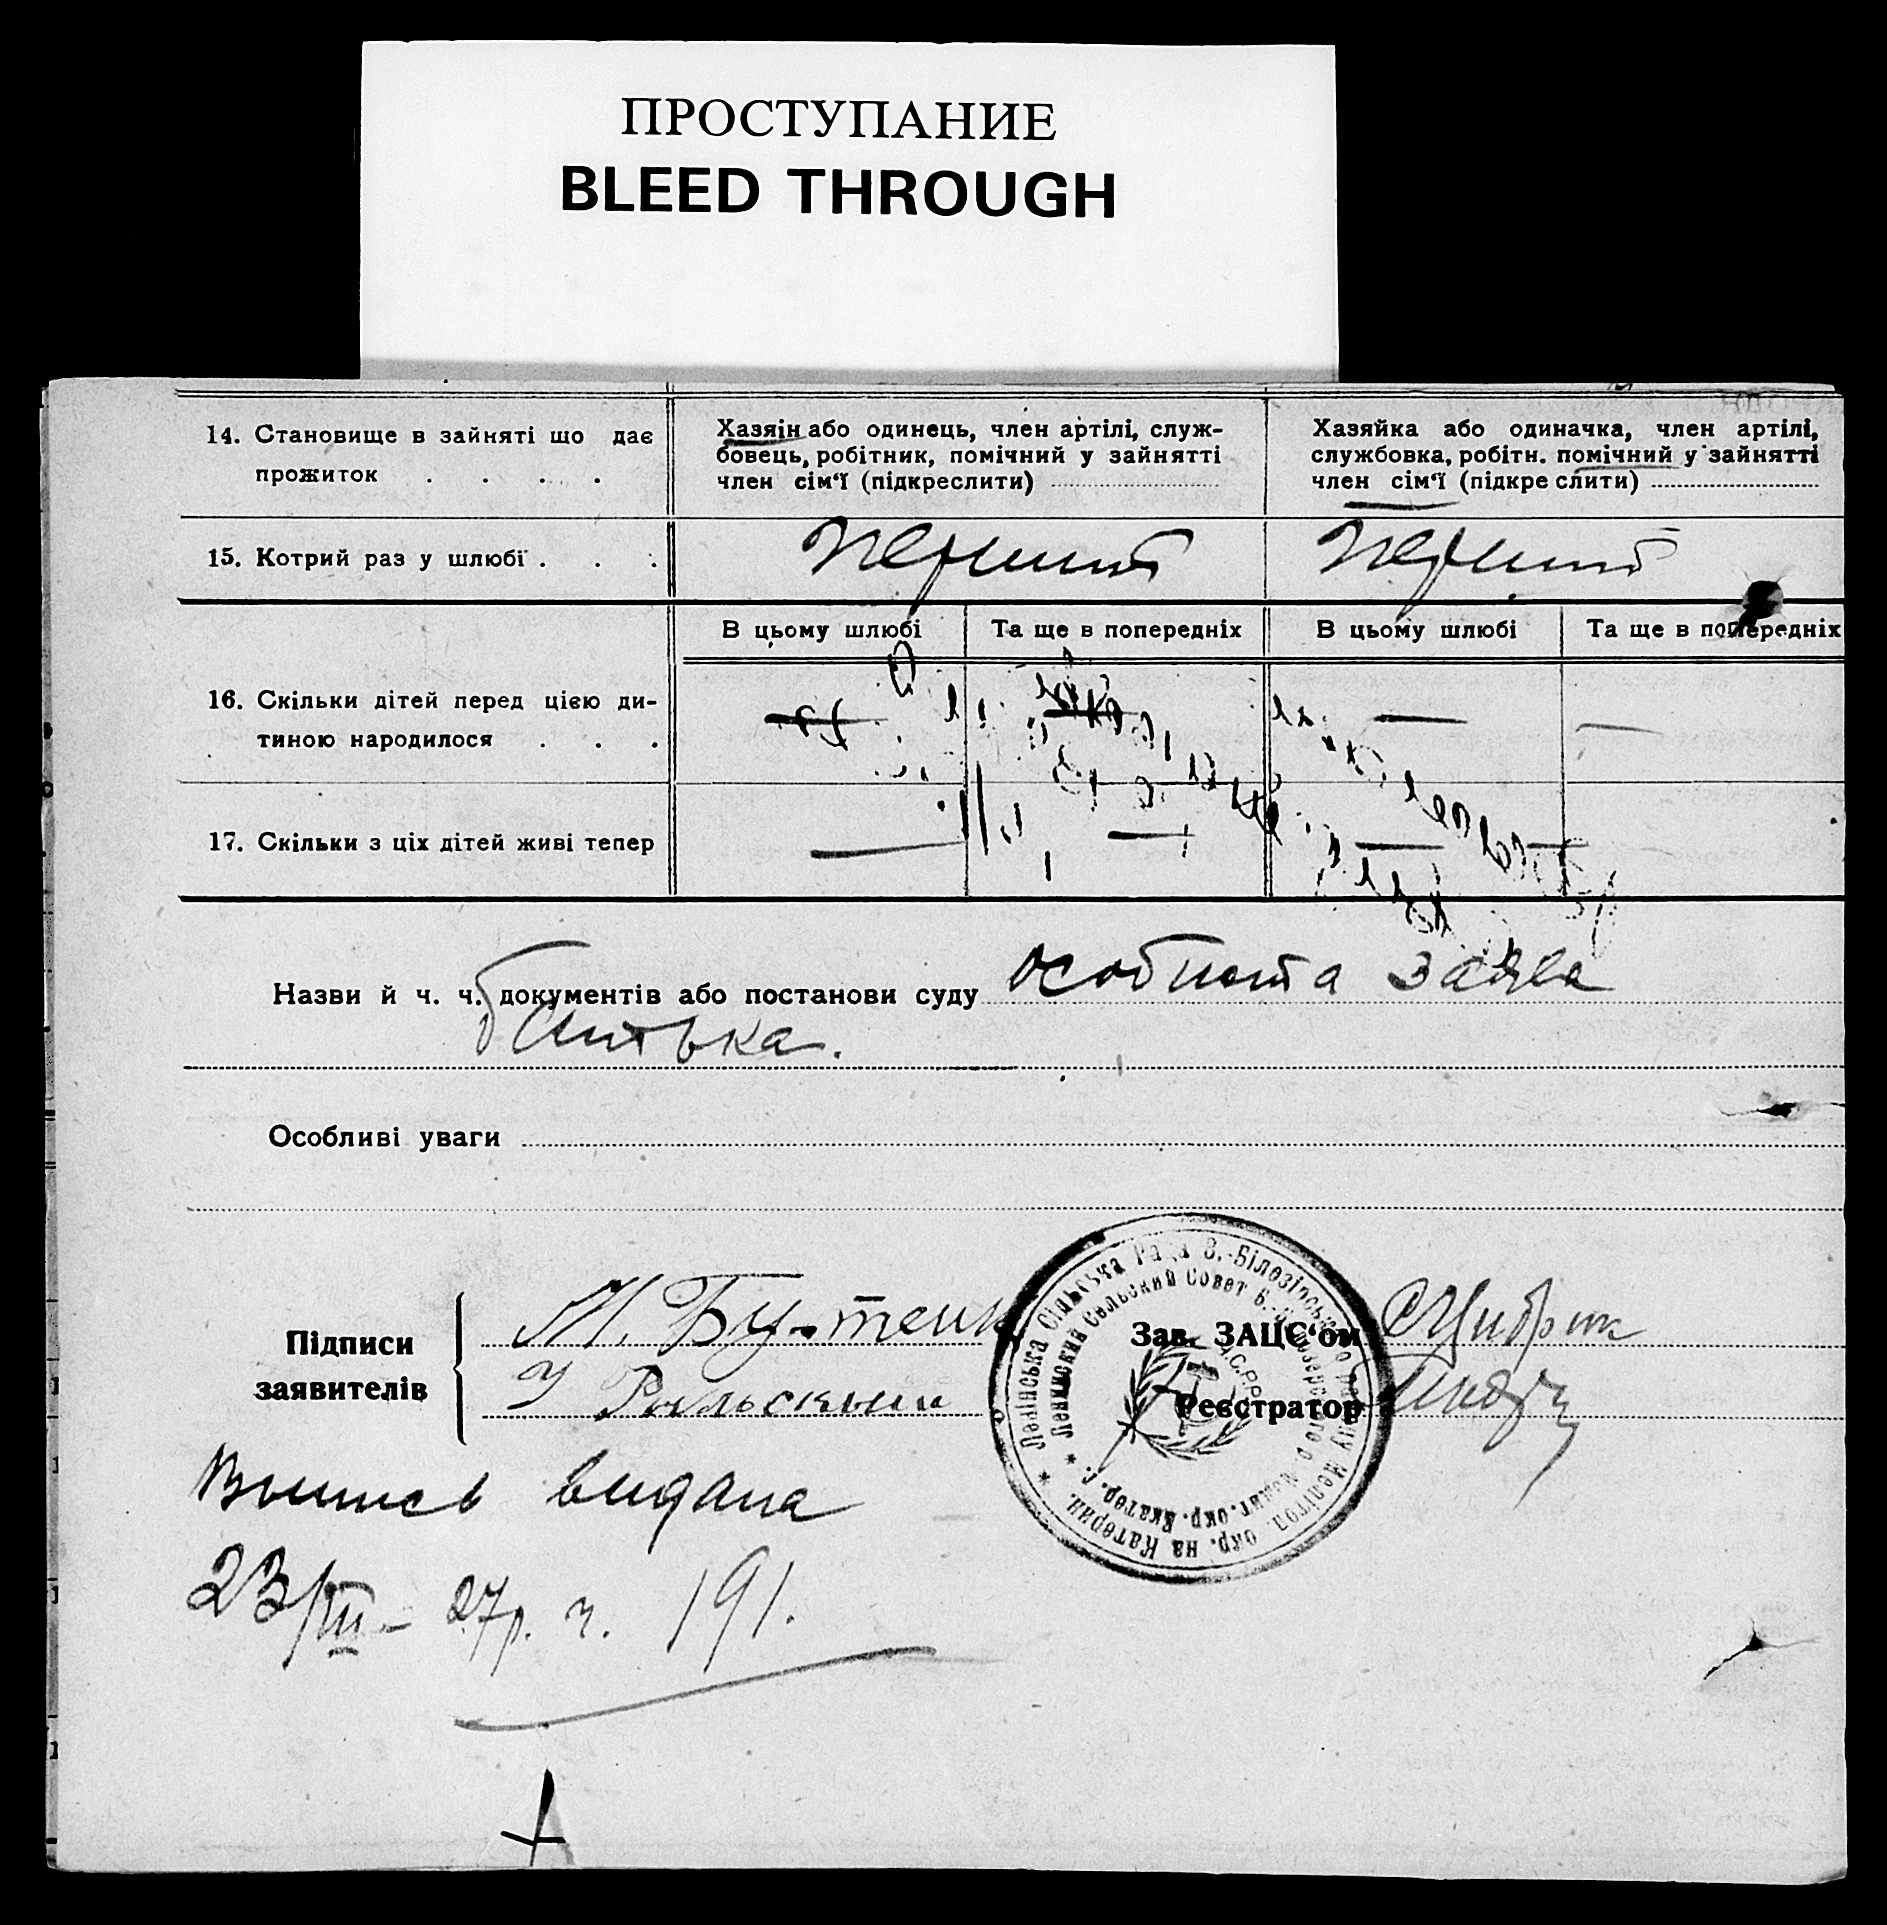 ПРОСТУПАНИЕ
BLEED THROUGH
14. Становище в зайняті що дає
прожиток . . . .
Хазяін або одинець, член артілі, служ-
бовець, робітник, помічний у зайнятті
член сім‘ї (підкреслити)
Хазяйка або одиначка, член артілі,
службовка, робітн. помічний у зайнятті
член сім‘ї (підкреслити)
15. Котрий раз у шлюбі . . .
перший
перший
В цьому шлюбі
Та ще в попередніх
В цьому шлюбі
Та ще в попередніх
16. Скільки дітей перед цією ди-
тиною народилося . . .
17. Скільки з ціх дітей живі тепер
Назви й ч. ч. документів або постанови суду особиста заява
батька.
Особливі уваги
Підписи
заявителів
М. Бутенк
У Рольский
Зав. ЗАЦС‘ом
Реєстратор
Ленінська Сільська Рада В.-Білозірського району Мелітоп. окр. на Катерин.
Ленинский Сельский Совет В.-Белозерского р. Мелит. окр. Екатер. г.
Выпись видана
23/III - 27р. ч. 191.